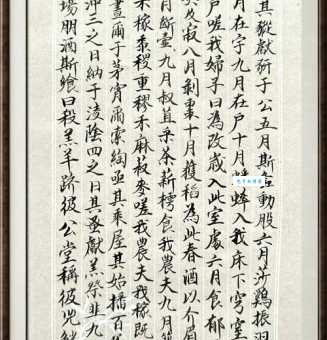 其豵獻豣于公五月斯螽動股六月莎雞振羽
月在宇九月在戶十月蟀入我床下穹窒
戶嗟我婦子曰為改歲入此室處六月食郁
及薁八月剝棗十月獲稻為此春酒以介眉
月斷壺九月叔苴采荼薪樗食我農夫九月
禾稼黍稷重穋禾麻菽麥嗟我農夫我稼既
晝爾于茅宵爾索綯亟其乘屋其始播百
沖三之日納于凌陰四之日其蚤獻羔祭韭九
場朋酒斯饗曰殺羔羊躋彼公堂稱彼兕